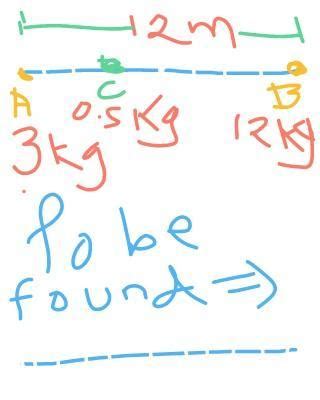 12m
A C B
3kg 0.5Kg 12kg
To be
found ⇒